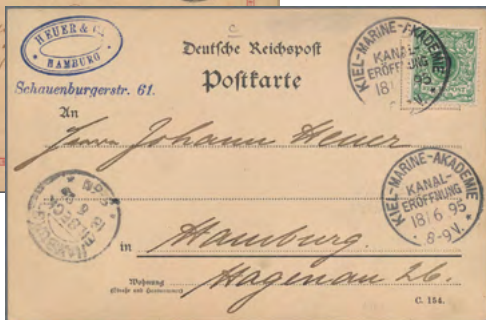 HEUER & Co.
HAMBURG
Schauenburgerstr. 61.
Deutsche Reichspost
Postkarte
KIEL-MARINE-AKADEMIE
KANAL-
ERÖFFNUNG
18 95
V.
An
Herrn Johann Heuer
KIEL-MARINE-AKADEMIE
KANAL-
ERÖFFNUNG
18 6 95
8-9 V.
HAMBURG
in Hamburg.
Wohnung
(Straße und Hausnummer)
Hagenau 26.
C. 154.